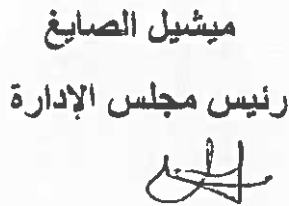 ميشيل الصايغ
رئيس مجلس الإدارة